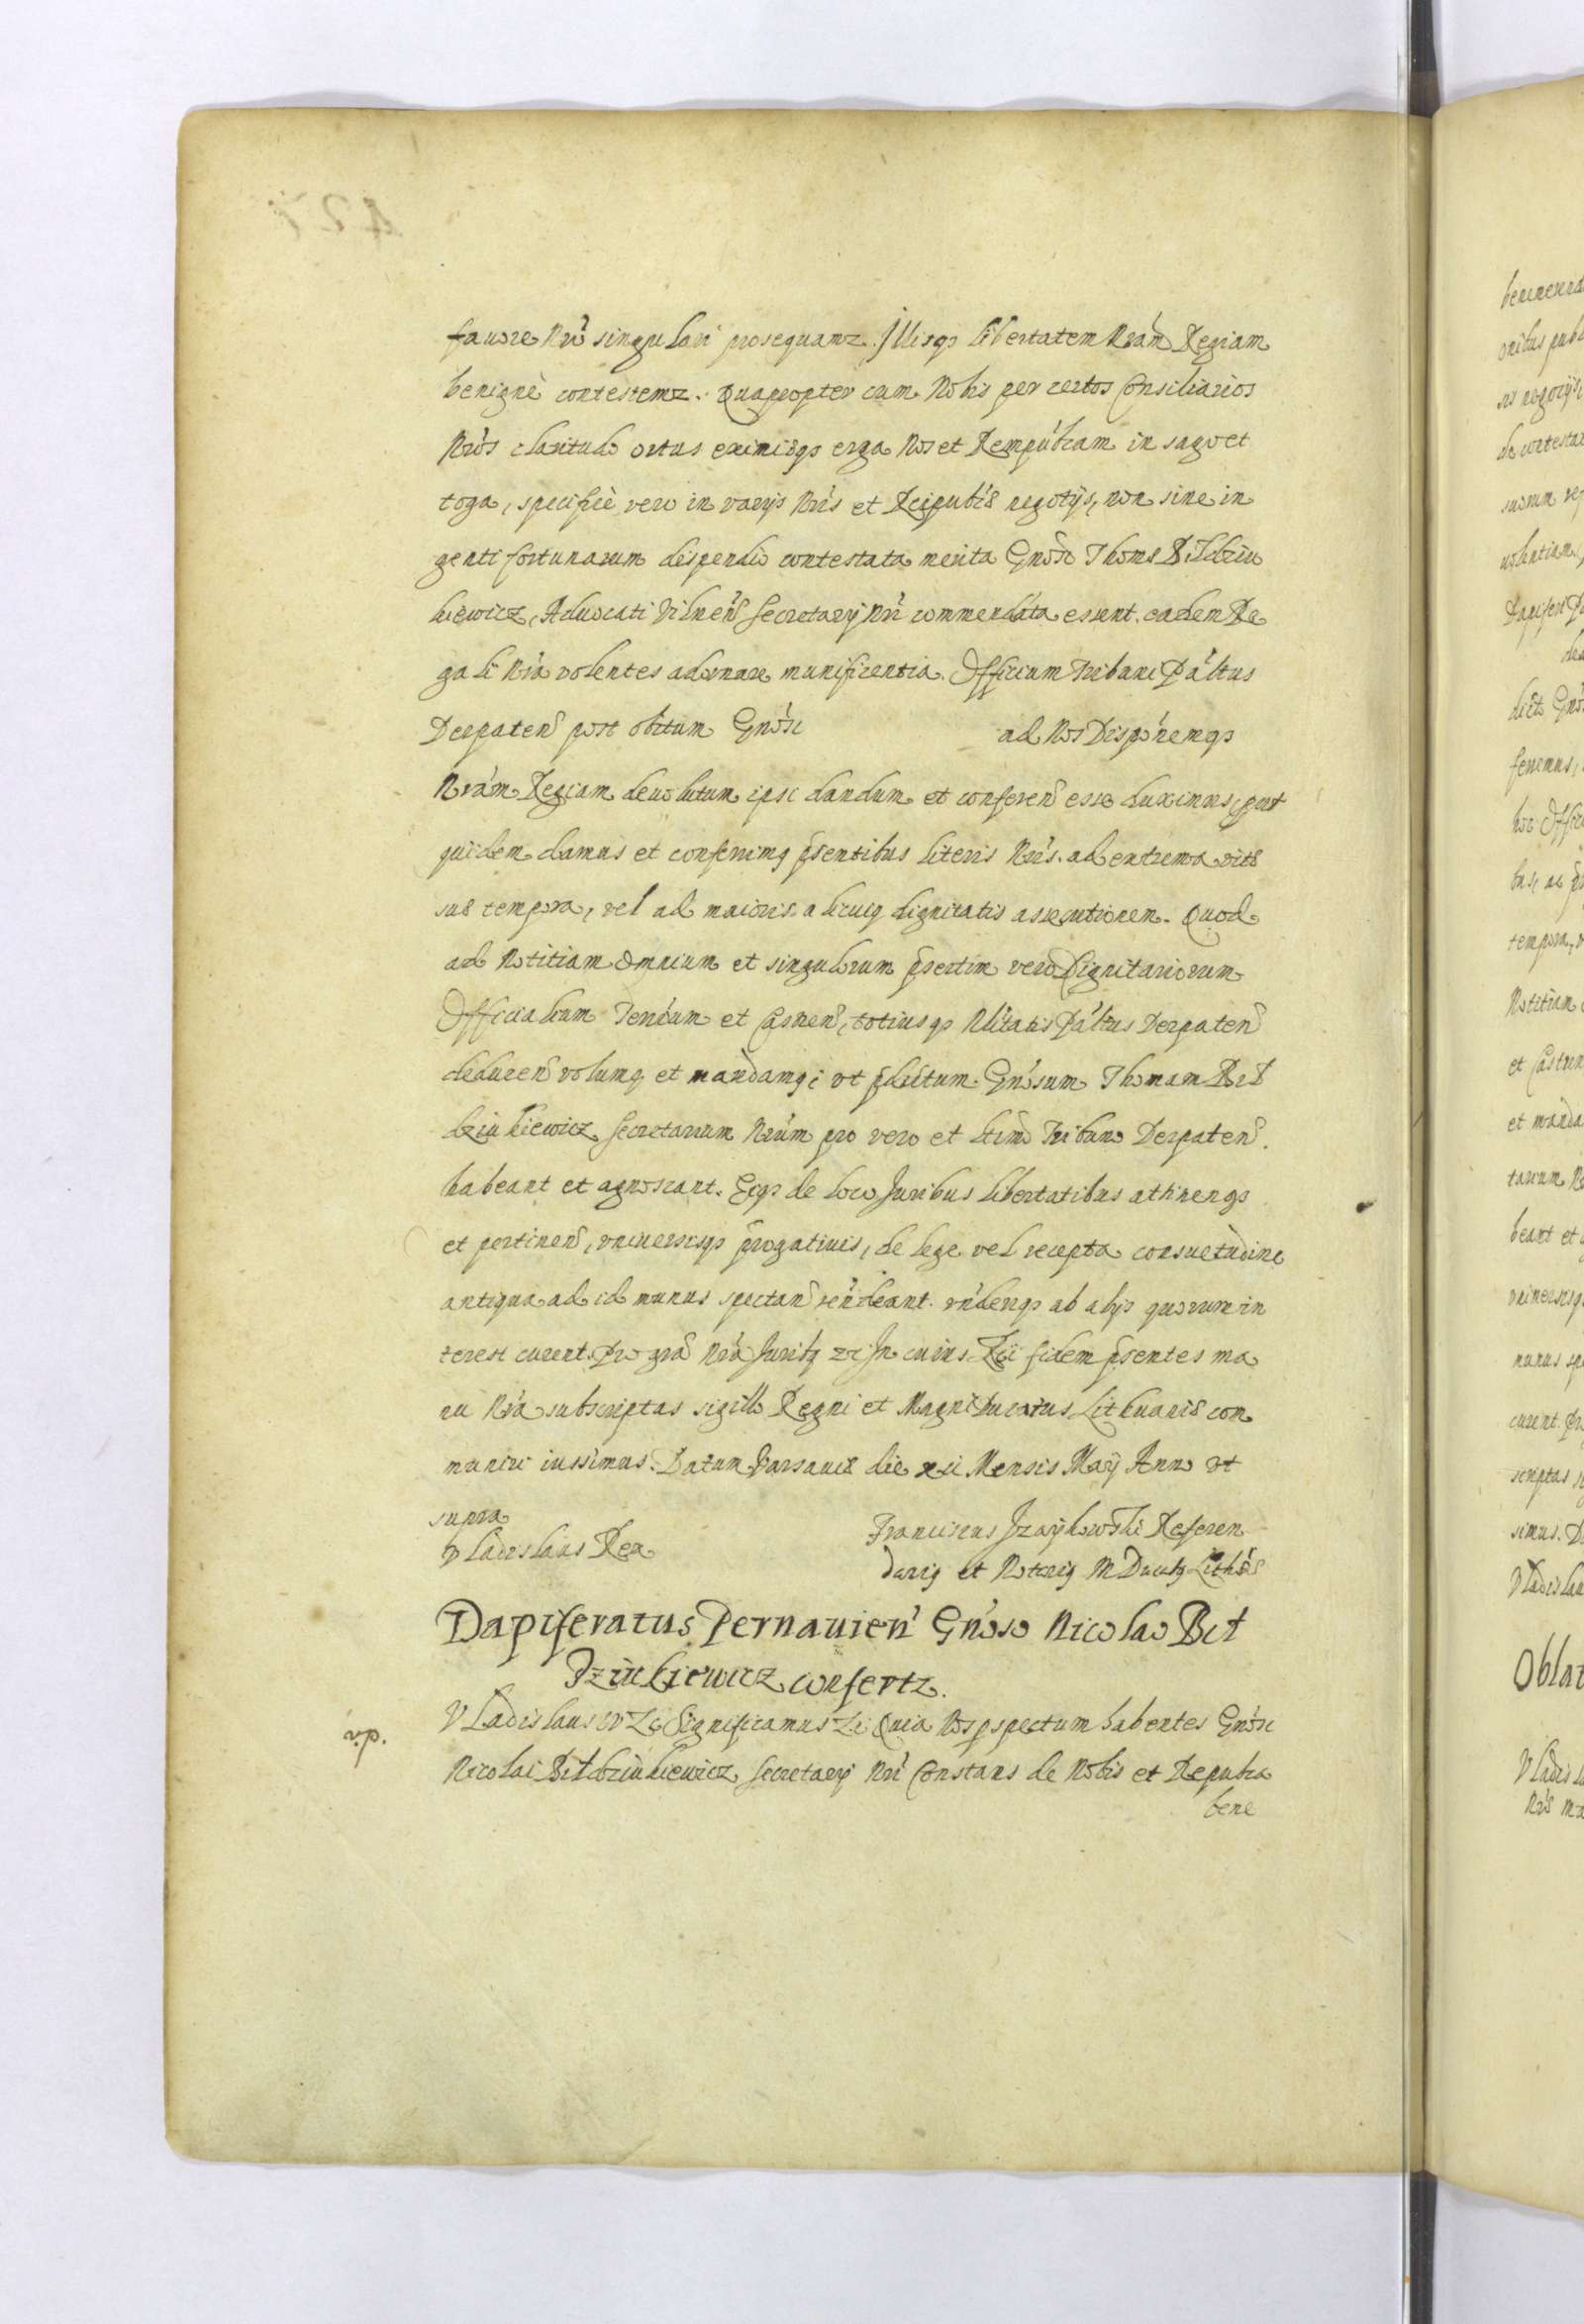 fauore Nrõ singulari prosequamz. Illisqꝫ libertatem Nrám Regiam
benignè contestemz. Quapropter cum Nobis per certos Consiliarios
Nrós claritudo ortus eximiaqꝫ erga Nos et Rempúbcam in sago et
toga, specificè vero in varijs Nrís et Reipubcæ negotijs, non sine in
genti fortunarum dispendio contestata merita Gnósi Thomæ Bildziu
kiewicz, Aduocati Vilneñ Secretarij Nrí commendata essent. eadem Re
gali Nrá volentes adornare munificentia. Officium Tribuni Páltus
Derpateñ post obitum Gnósi ad Nos Dispónemqꝫ
Nrám Regiam deuolutum ipsi dandum et confereñ esse duximus, put
quidem damus et conferimꝫ pñsentibus literis Nrís. ad extrema vitæ
suæ tempora, vel ad maioris alicuiꝫ dignitatis assecutionem. Quod
ad Notitiam Omnium et singulorum pñsertim vero Dignitariorum
Officialium Terrúm et Castreñ, totiusqꝫ Nlitatis Páltus Derpateñ
deduceñ volumꝫ et mandamꝫ, vt pdictum Gnósum Thomam Bil
dziukiewicz Secretarium Nrúm pro vero et ltimo Tribuno Derpateñ.
habeant et agnoscant. Eiqꝫ de loco Juribus libertatibus attinenꝫ
et pertineñ, vniuersisqꝫ prrogatiuis, de lege vel recepta consuetudine
antiqua ad id munus spectañ rñdeant. rñderiqꝫ ab alijs quorum in
terest curent. Pro gra Nrá Juribꝫ zc In cuius Rei fidem pñsentes ma
nu Nrá subscriptas sigillo Regni et Magni Ducatus Lithuaniæ com
muniri iussimus. Datum Varsauiæ die xii Mensis Maij Anno vt
supra
Vladislaus Rex
Franciscus Jzaÿkowski Referen
dariꝫ et Notariꝫ M Ducatꝫ Lithũæ
Dapiferatus Pernauień Gnóso Nicolao Bil
dziukiewicz confertz.
v.p.
Vladislaus IV Zc Significamus Zc Quia Nos pspectum habentes Gnósi
Nicolai Bildziukiewicz Secretarij Nrí Constans de Nobis et Repubca
bene